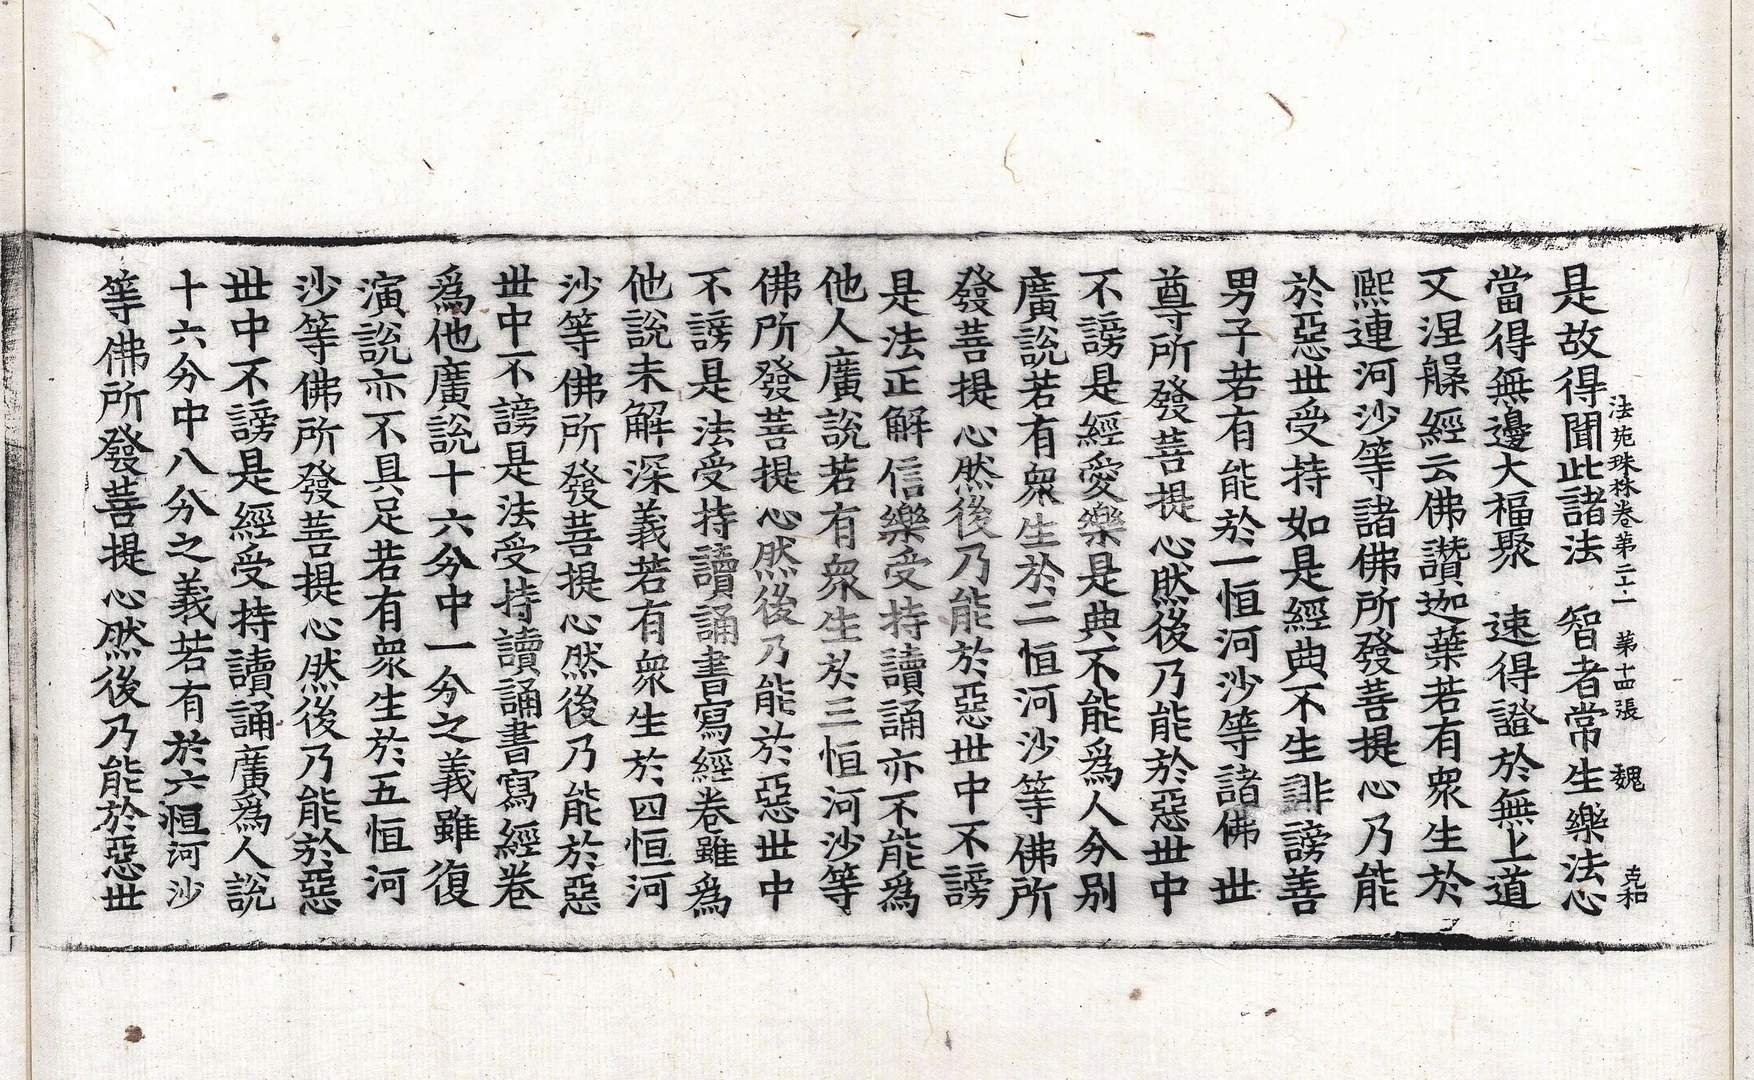 法苑珠林卷第二十一 第十四張 魏 克和
是故得聞此諸法 智者常生樂法心
當得無邊大福聚 速得證於無上道
又涅槃經云佛讚迦葉若有衆生於
熈連河沙等諸佛所發菩提心乃能
於惡世受持如是經典不生誹謗善
男子若有能於一恒河沙等諸佛世
尊所發菩提心然後乃能於惡世中
不謗是經愛樂是典不能爲人分别
廣説若有衆生於二恒河沙等佛所
發菩提心然後乃能於惡世中不謗
是法正解信樂受持讀誦亦不能爲
他人廣説若有衆生於三恒河沙等
佛所發菩提心然後乃能於惡世中
不謗是法受持讀誦書寫經卷雖爲
他説未解深義若有衆生於四恒河
沙等佛所發菩提心然後乃能於惡
世中不謗是法受持讀誦書寫經卷
爲他廣説十六分中一分之義雖復
演説亦不具足若有衆生於五恒河
沙等佛所發菩提心然後乃能於惡
世中不謗是經受持讀誦廣爲人説
十六分中八分之義若有於六恒河沙
等佛所發菩提心然後乃能於惡世